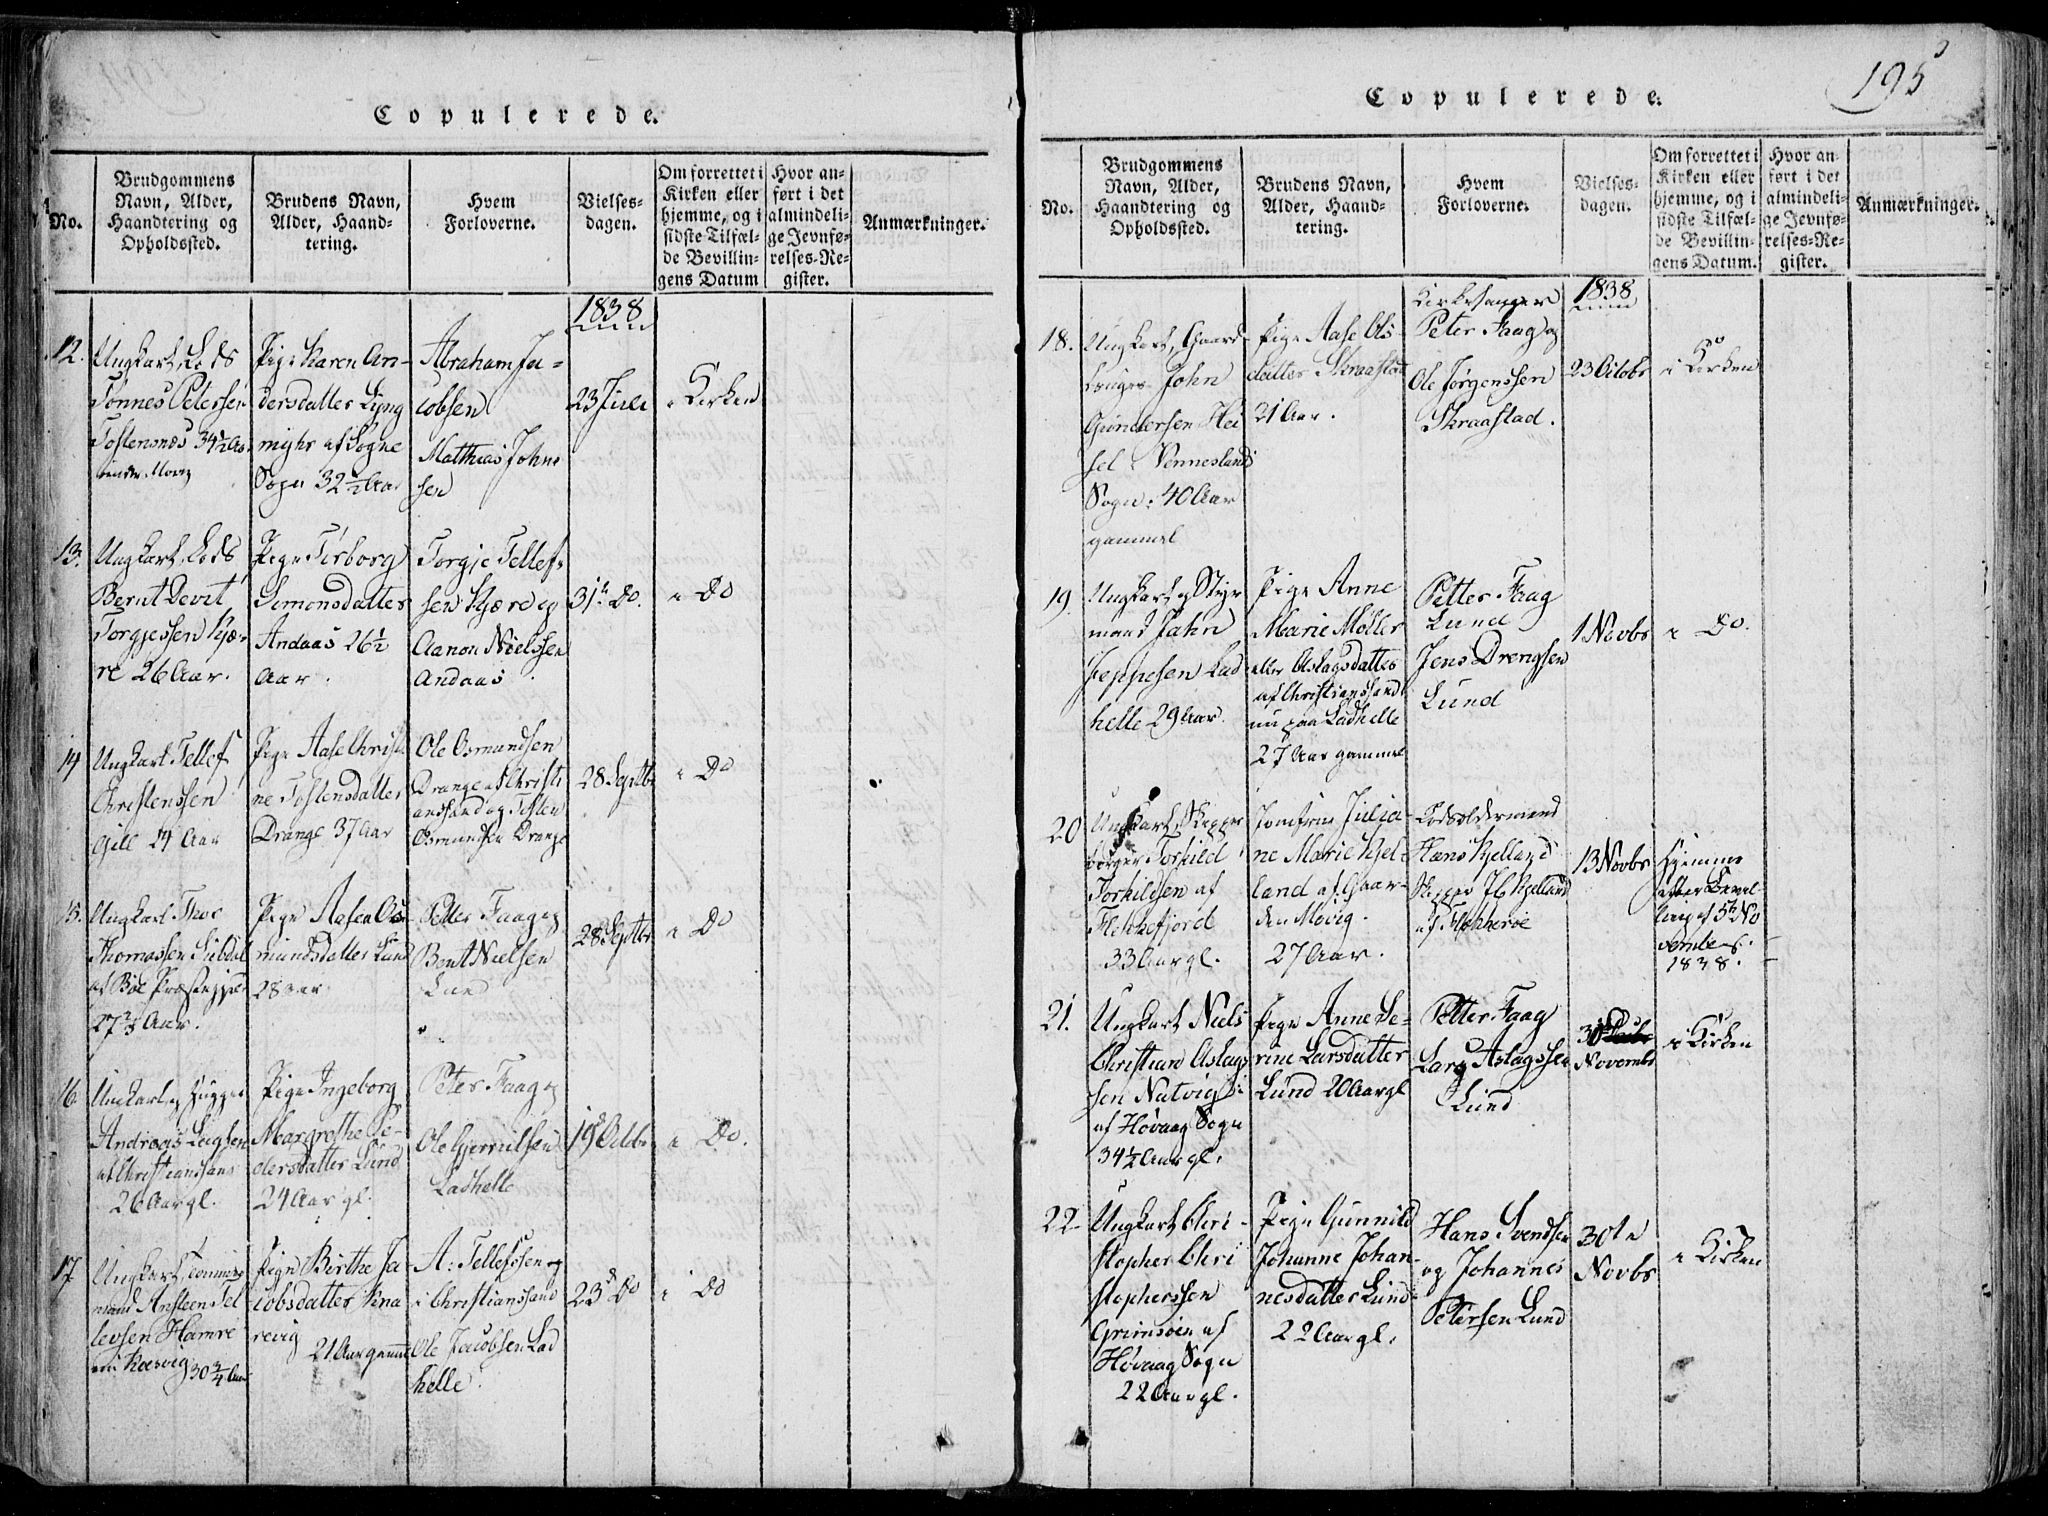 Copulerede.
No.
Brudgommens
Navn, Alder,
Haandtering og
Opholdssted.
Brudens Navn,
Alder, Haand-
tering.
Hvem
Forloverne.
Vielses-
dagen.
Om forrettet i
Kirken eller
hjemme, og i
sidste Tilfæl-
de Bevillin-
gens Datum
Hvor an-
ført i det
almindeli-
ge Jevnfø-
relses-Re-
gister.
Anmærkninger.
1838
12.
Ungkarl, Lods
Tønnes Petersen
Tostensnæs 34½ Aar
Pige Karen An-
dersdatter Lyng
af Sogne
Sogn 32½ Aar
Abraham Ja-
cobsen
Matthias John-
sen
23 Juli
i Kirken
13.
Ungkarl, Lods
Bernt Devit
Torgjessen Kjæ-
re 26 Aar.
Pige Tørborg
Simonsdatter
Andaas 26½
Aar.
Torgje Tellef-
sen Kjære og
Aanon Nielssen
Andaas.
31te Do.
i Do
14
Ungkarl Tellef
Christenssen
Gill 24 Aar
Pige Aase Christi-
ne Tostensdatter
Drange 37 Aar
Ole Osmundsen
Drange af Christi
ansand og Tosten
Osmundsen Drange
28 Septbr
i Do
15.
Ungkarl Thor
Thomassen
af Præstegjeld
27 Aar.
Pige Aasea Os-
mundsdatter Lund
28 Aar
Petter Faag og
Bent Nielsen
Lund
28 Septbr
i Do
16
Ungkarl og
Andreas
af Christianssand
26 Aar gl.
Pige Ingeborg
Margrethe Pe-
dersdatter Lund
24 Aar gl.
Peter Faag og
Ole Gjermilsen
Ladhelle
19 Octobr
i Do.
17
Ungkarl, Tømmer-
mand Ansteen Tel
levsen Hamre
30¾ Aar
Pige Birthe Ja-
cobsdatter Kna-
revig
21 Aar gammel
A: Tellefssen og
i Christianssand
Ole Jacobsen Lad
helle.
23 Do
i Do
195
Copulerede.
No.
Brudgommens
Navn, Alder,
Haandtering og
Opholdssted.
Brudens Navn,
Alder, Haand-
tering.
Hvem
Forloverne.
Vielses-
dagen.
Om forrettet i
Kirken eller
hjemme, og i
sidste Tilfæl-
de Bevillin-
gens Datum.
Hvor an-
ført i det
almindeli-
ge Jevnfø-
relses-Re-
gister.
Anmærkninger.
1838
18.
Ungkarl, Gaard-
bruger John
Gundersen Hei
sel i Venneslands
Sogn. 40 Aar
gammel
Pige Aase Ols-
datter Skraastad
21 Aar.
Kirkesanger
Peter Faag og
Ole Jørgenssen
Skraastad.
23 Octobr
i Kirken
19.
Ungkarl og Styr
mand Jahn
Jeppesen Lad
helle 29 Aar.
Pige Anne
Marie Møller
eller Aslagsdatter
af Christianssand
nu paa Ladhelle
27 Aar gammel
Petter Faag
Lund
Jens Drengsen
Lund
1 Novbr
i Do.
20
Ungkarl, Skipper
Borger Torkild
Torkildsen af
Flekkefjord
33 Aar gl.
Jomfrue Julia-
ne Marie Kjel-
land af Gaar-
den Møvig.
27 Aar.
Lodsoldermand
Hans Kjelland
Skipper Kjelland
af Flekkerøe
13 Novbr
Hjemme
efter Bevil-
ling af 5te No
vember
1838.
21.
Ungkarl Niels
Christian Aslags
sen Natvig
af Høvaag Sogn
34½ Aar gl.
Pige Anne Se-
rine Larsdatter
Lund 20 Aar gl
Petter Faag
Lars Aslagssen
Lund
30
Novembr
i Kirken
22
Ungkarl Chri-
stopher Chri
stopherssen
Grimsøen af
Høvaag Sogn
22 Aar gl.
Pige Gunnild
Johanne Johan-
nesdatter Lund
22 Aar gl.
Hans Svendsen
og Johannes
Petersen Lund
30te
Novbr
i Kirken